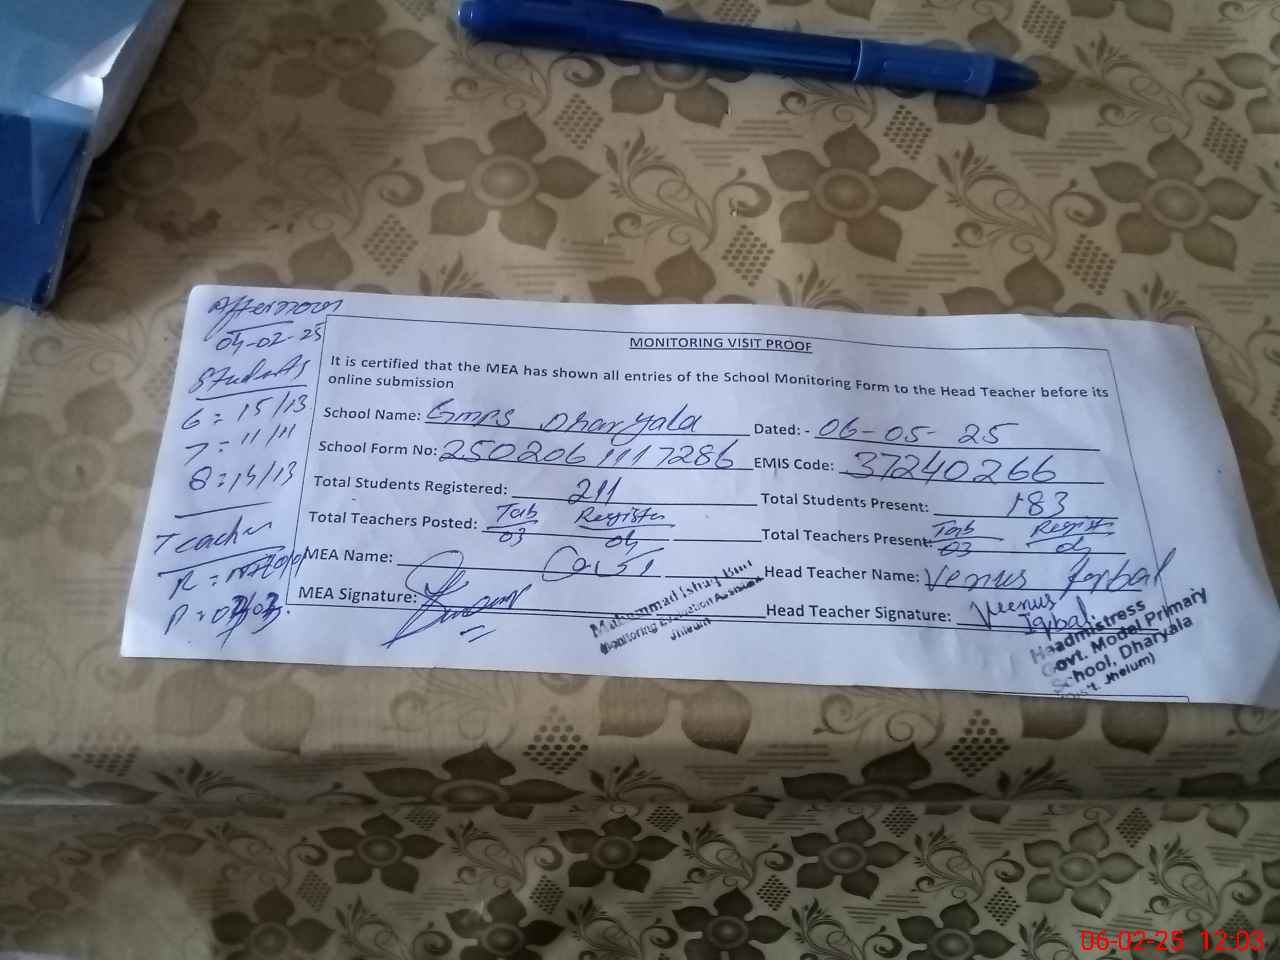 Afternoon
04-02-25
Students
6 = 15/13
7 = 11/11
8 = 14/13
Teacher
R =
P =
MONITORING VISIT PROOF
It is certified that the MEA has shown all entries of the School Monitoring Form to the Head Teacher before its
online submission
School Name: GMPS Dharyala Dated: - 06-05-25
School Form No: 2502061117286 EMIS Code: 37240266
Total Students Registered: 211 Total Students Present: 183
Total Teachers Posted: Tab 03 Register 04 Total Teachers Present: Tab 03 Register 04
MEA Name: Head Teacher Name: Venus Iqbal
MEA Signature: Head Teacher Signature: Veenus Iqbal
Muhammad Ishaq Butt
Monitoring & Evaluation Assistant
Jhelum
Headmistress
Govt. Model Primary
School, Dharyala
(Distt. Jhelum)
06-02-25 12:03